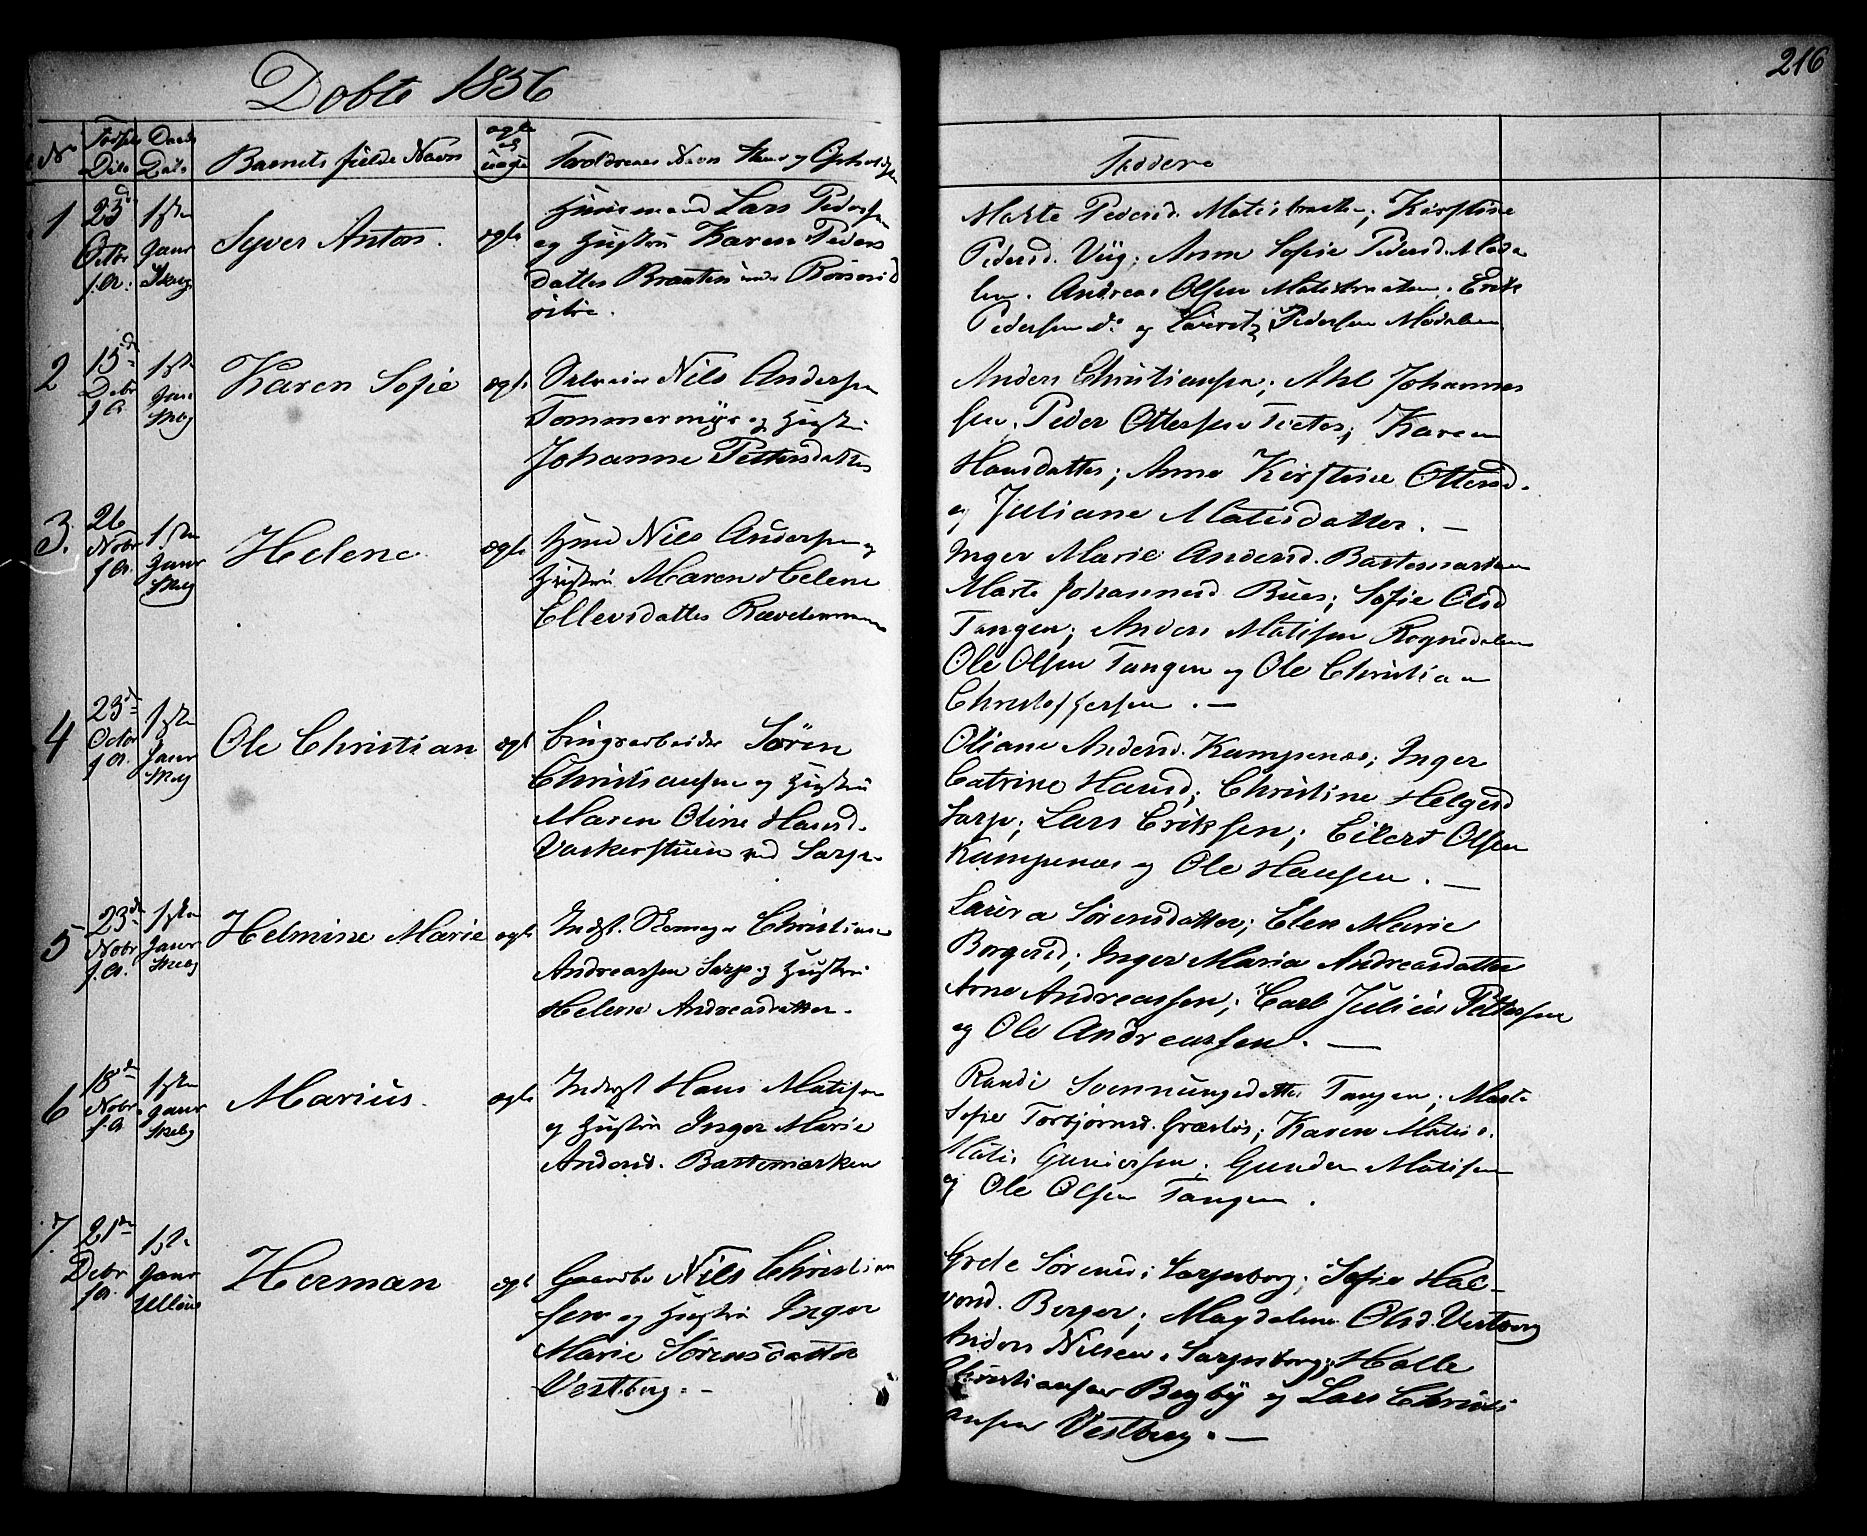 216
Døbte 1856
No
Fødsels Dato
Daabs Dato
Barnets fulde Navn
ægte el uægte
Forældrenes Navn Stand og Opholdssted
Faddere
1
23d Octbr f.A.
1ste Janr Skeby
Syver Anton.
ægte
Huusmand Lars Pedersen
og Hustru Karen Peders
datter Braaten under
østre.
Marte Pedersd. Kirstine
Pedersd. Viig; Anne Sofie Pedersd. Moda
len. Andreas Olsen Erik
Pedersen do og Lauretz Pedersen Modalen
2
15de Debr f A
1ste Janr Skeby
Karen Sofie
ægte
Nils Andersen
Tømmermyr og Hustru
Johanne Pettersdatter
Anders Christiansen; Axl Johannes
sen. Peder Ottersen Karen
Hansdatter; Anne Kirstine Ottersd.
og Juliane Matisdatter. —
3.
26 Nobr f A.
1ste Janr Skeby
Helene
ægte
Hmd Nils Andersen og
Hustru Maren Helene
Ellevsdatter
Inger Marie Andersd. Bastemarken
Marte Johannesd Buer; Sofie Olsd
Tangen; Anders Matisen Rognedalen
Ole Olsen Tangen og Ole Christian
Christoffersen. —
4
23de Octbr f A.
1ste Janr Skeby
Ole Christian
ægte
Brugsarbeider Søren
Christiansen og Hustru
Maren Oline Hansd.
ved Sarp.
Oliane Andersd. Kampenes; Inger
Catrine Hansd; Christine Helgesd
Sarp; Lars Eriksen; Eilert Olsen
Kampenæs og Ole Hansen. —
5
23de Nobr f.A.
1ste Janr Skeby
Helmine Marie
ægte
Indst. Skomager Christian
Andreassen Sarp og Hustru
Helene Andreasdatter.
Laura Sørensdatter; Elen Marie
Borgersd; Inger Maria Andreasdatter
Arne Andreassen; Carl Julius Pettersen
og Ole Andreassen. —
6
18de Nobr f A
1ste Janr Skeby
Marius.
ægte
Inderst Hans Matisen
og Hustru Inger Marie
Andersd. Bastemarken
Randi Svennungsdatter Tangen; Marte
Sofie Torbjørnsd. Græslos; Karen Matisd.
Matis Gunersen; Gunder Matisen
og Ole Olsen Tangen.
7
21de Debr f A.
1ste Janr Ullerøe
Herman
ægte
Gaardbr Nils Christian
sen og Hustru Inger
Marie Sørensdatter
Vestberg. —
Grete Sørensd; Sarpsborg; Sofie Hal-
vorsd. Berger; Magdalene Olsd. Vestberg
Anders Nilsen. Sarpsborg; Halle
Christiansen Begby og Lars Christi
ansen Vestberg. —